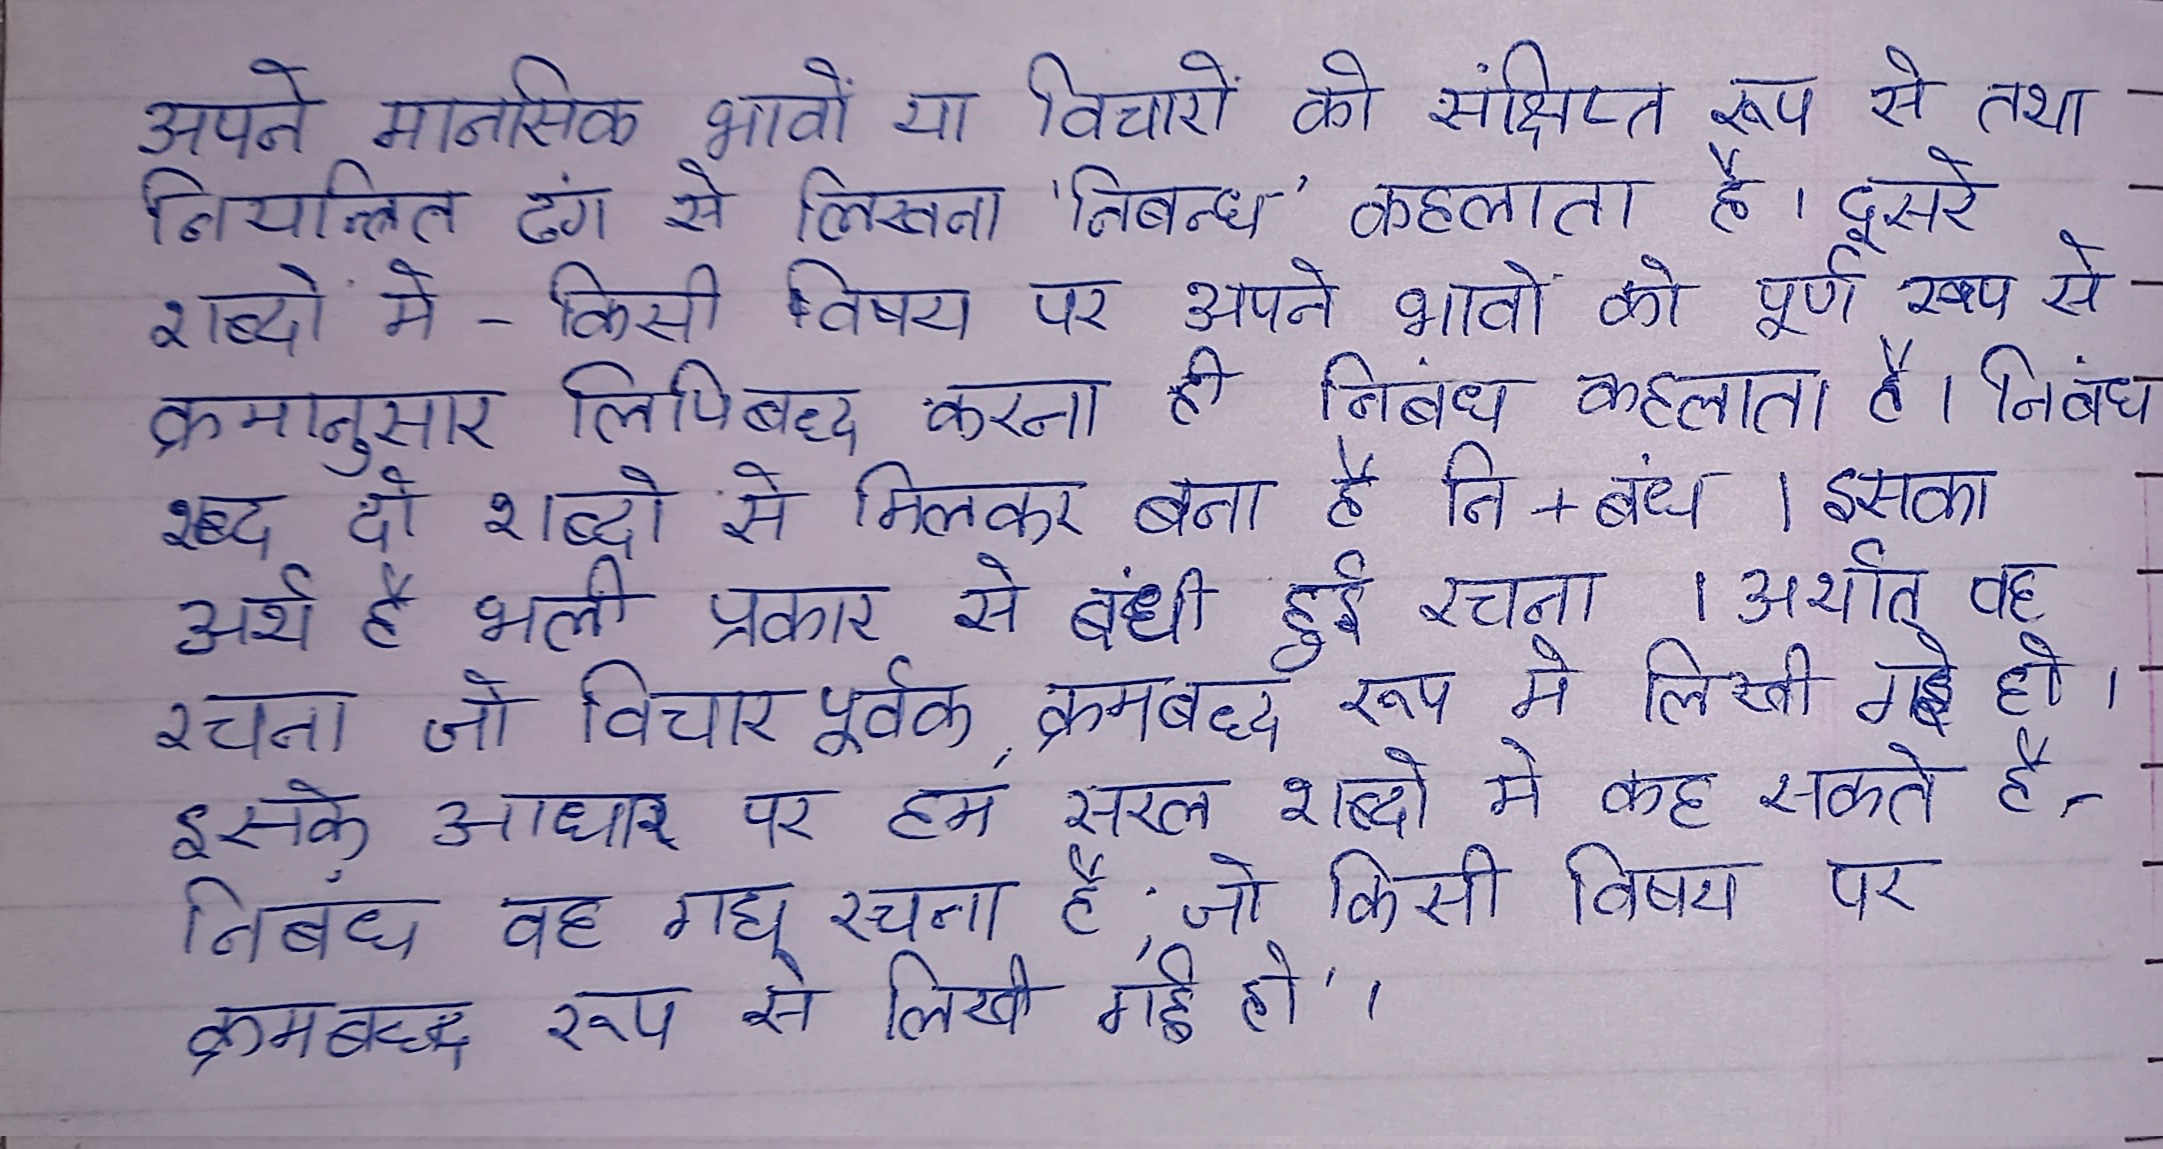 अपने मानसिक भावों या विचारों को संक्षिप्त रूप से तथा
नियन्त्रित ढंग से लिखना 'निबन्ध' कहलाता है। दूसरे
शब्दों में - किसी विषय पर अपने भावों को पूर्ण रूप से
क्रमानुसार लिपिबद्ध करना ही निबंध कहलाता है। निबंध
शब्द दो शब्दो से मिलकर बना है नि + बंध । इसका
अर्थ है भली प्रकार से बंधी हुई रचना । अर्थात् वह
रचना जो विचार पूर्वक, क्रमबद्ध रूप मे लिखी गई हो।
इसके आधार पर हम सरल शब्दो मे कह सकते है,-
निबंध वह गद्य रचना है, जो किसी विषय पर
क्रमबद्ध रूप से लिखी गई हो'।